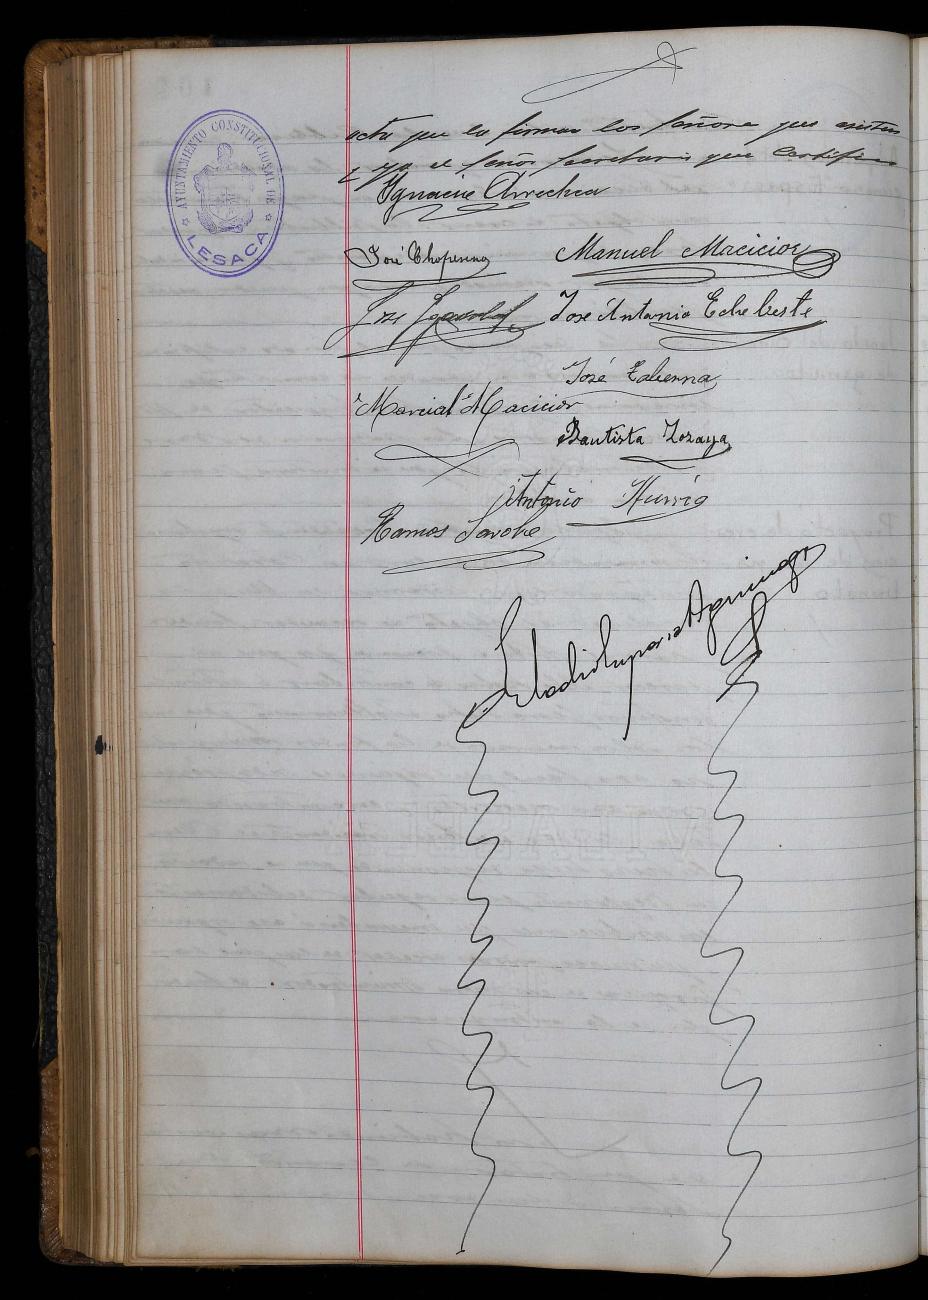 AYUNTAMIENTO CONSTITUCIONAL DE
LESACA
acta que la firman los señores que asisten
y yo el señor Secretario que Certifico
Ignacio Arrechea
José Choperena Manuel Macicior
José José Antonio Echebeste
José Taberna
Marcial Macicior
Bautista Zozaya
Antonio Iturria
Ramos Sarobe
Eladio Esparza Aguinaga